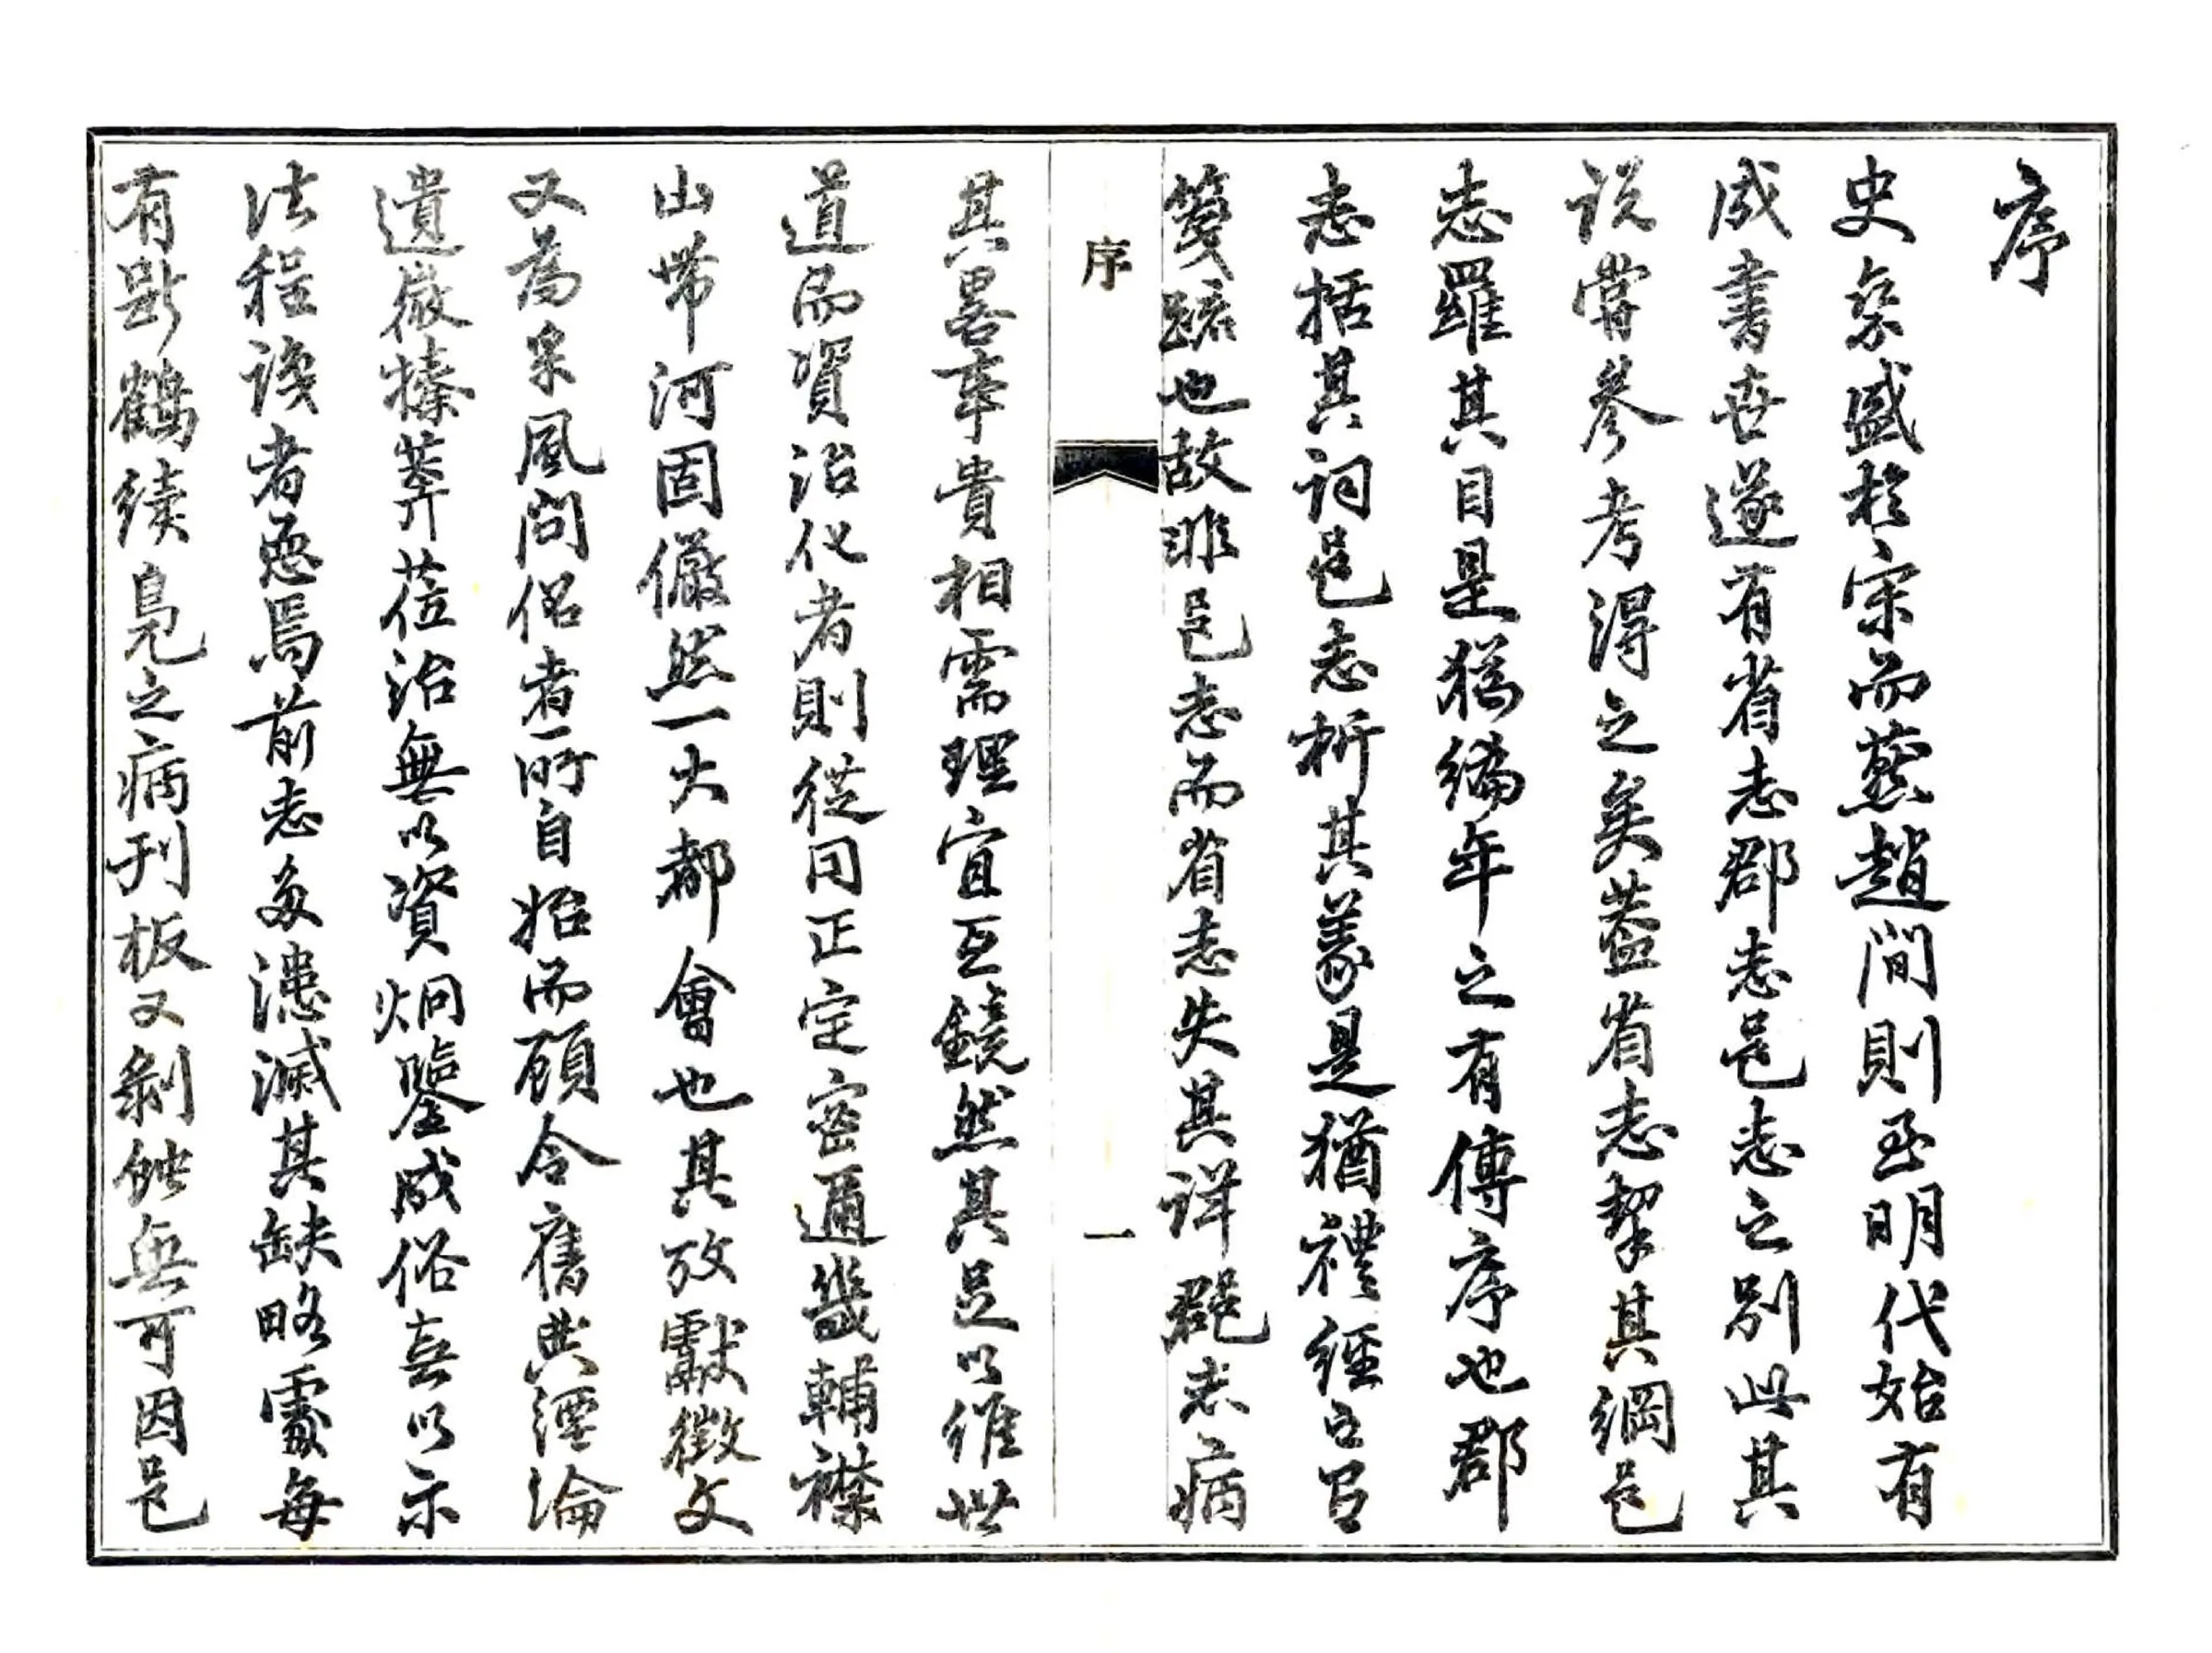 序
史乘盛於宋而燕趙間則至明代始有
成書世遂有省志郡志邑志之別此其
説嘗參考得之矣葢省志挈其綱邑
志羅其目是猶編年之有傳序也郡
志括其詞邑志析其義是猶禮經之有
箋䟽也故非邑志而省志失其詳郡志病
序
一
其畧事貴相需理宜互鏡然其足以維世
道而資治化者則從同正定密邇畿輔襟
山帶河固儼然一大都會也其攷獻徵文
又為采風問俗者所自始而顧令舊典湮淪
遺徽榛莽莅治無以資烱鑒成俗無以示
法程識者恧焉前志多漶滅其缺略處每
有斷鶴續鳧之病刊板又剝蝕無可因邑